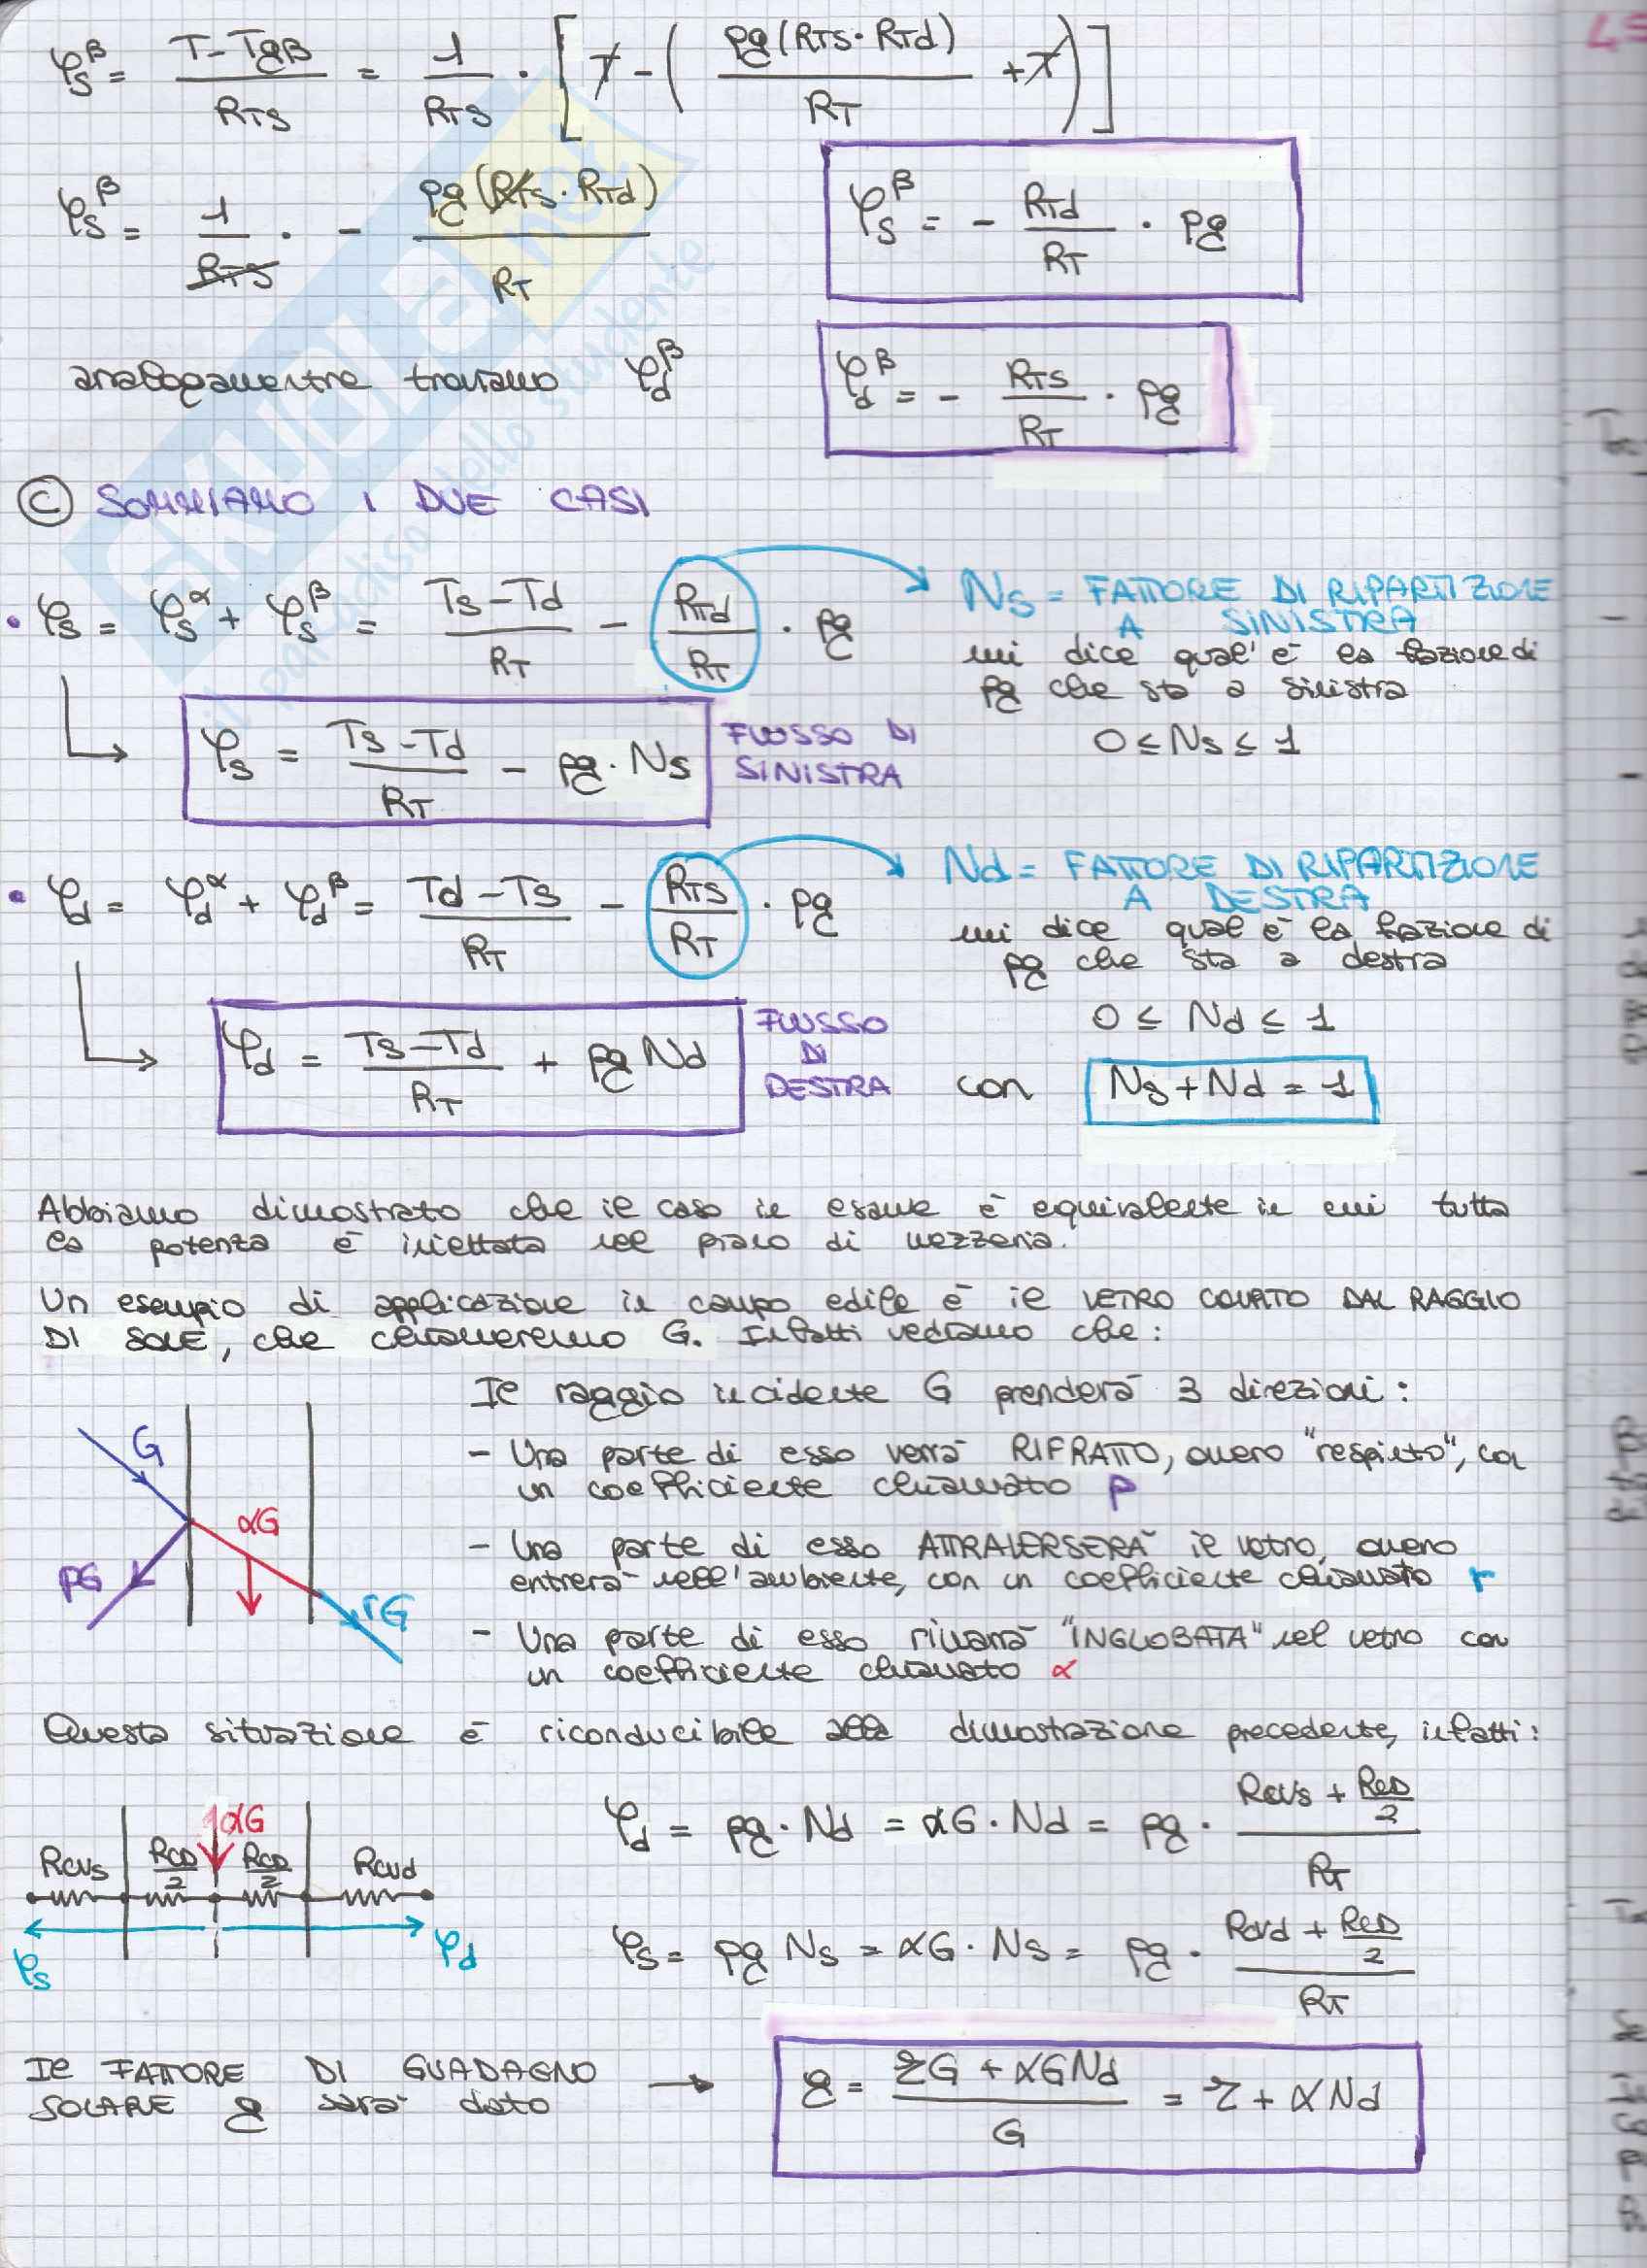 φ_S^β = (T - Tgβ)/R_TS = 1/R_TS · [T - (pg (R_TS · R_Td)/R_T + T)]
φ_S^β = 1/R_TS · - pg (R_TS · R_Td)/R_T
φ_S^β = - R_Td/R_T · pg
analogamente troviamo φ_d^β
φ_d^β = - R_TS/R_T · pg
Ⓒ SOMMIAMO I DUE CASI
• φ_S = φ_S^α + φ_S^β = (Ts - Td)/R_T - R_Td/R_T · pg
Ns = FATTORE DI RIPARTIZIONE
A SINISTRA
mi dice qual'è la frazione di
pg che sta a sinistra
0 ≤ Ns ≤ 1
φ_S = (Ts - Td)/R_T - pg · Ns
FLUSSO DI
SINISTRA
• φ_d = φ_d^α + φ_d^β = (Td - Ts)/R_T - R_TS/R_T · pg
Nd = FATTORE DI RIPARTIZIONE
A DESTRA
mi dice qual è la frazione di
pg che sta a destra
0 ≤ Nd ≤ 1
φ_d = (Ts - Td)/R_T + pg Nd
FLUSSO
DI
DESTRA
con Ns + Nd = 1
Abbiamo dimostrato che il caso in esame è equivalente in cui tutta
la potenza è iniettata nel piano di mezzeria.
Un esempio di applicazione in campo edile è il VETRO COLPITO DAL RAGGIO
DI SOLE, che chiameremo G. Infatti vediamo che:
Il raggio incidente G prenderà 3 direzioni:
- Una parte di esso verrà RIFRATTO, ovvero "respinto", con
un coefficiente chiamato ρ
- Una parte di esso ATTRAVERSERÀ il vetro, ovvero
entrerà nell'ambiente, con un coefficiente chiamato r
- Una parte di esso rimarrà "INGLOBATA" nel vetro con
un coefficiente chiamato α
G
αG
ρG
rG
Questa situazione è riconducibile alla dimostrazione precedente, infatti:
αG
Rcvs RCD/2 RCD/2 Rcvd
φs φd
φ_d = pg · Nd = αG · Nd = pg · (Rcvs + RCD/2)/R_T
φ_S = pg Ns = αG · Ns = pg · (Rcvd + RCD/2)/R_T
Il FATTORE DI GUADAGNO
SOLARE g sarà dato
→ g = (τG + αGNd)/G = τ + αNd
SKUOLA.net
il paradiso dello studente